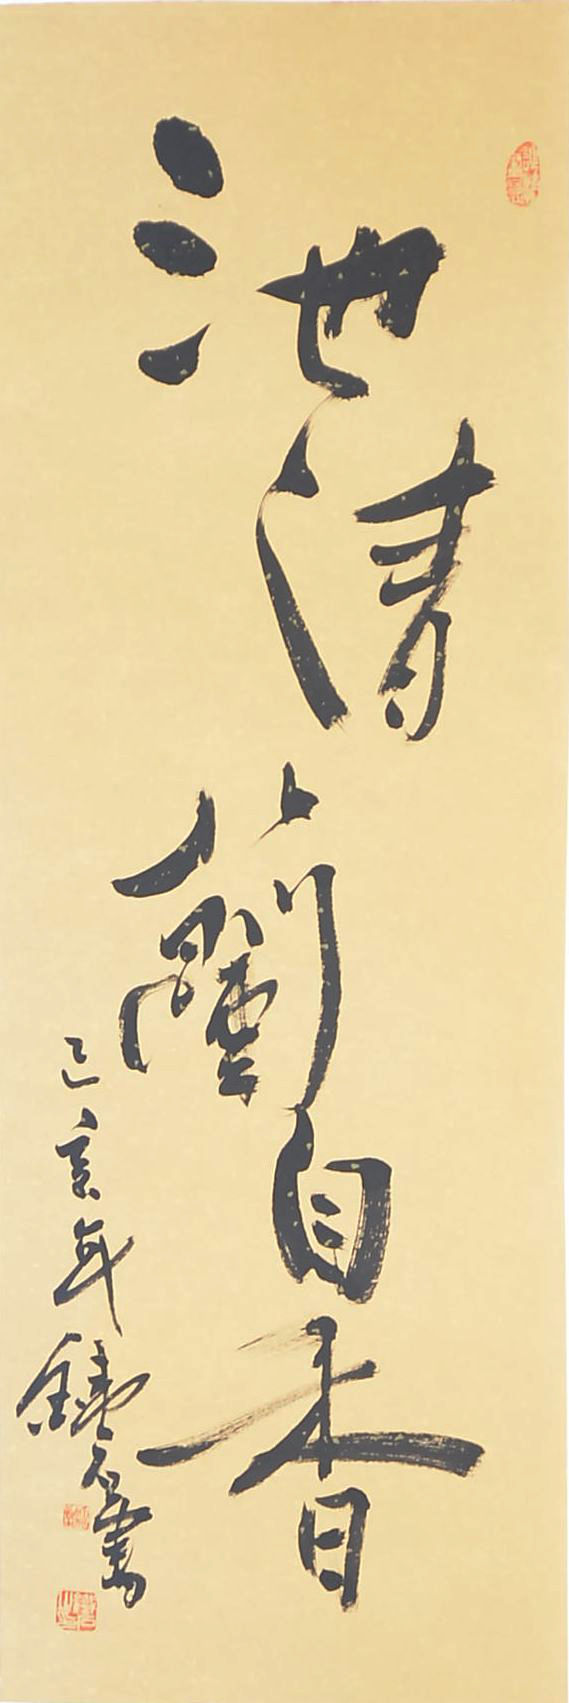 池清蘭自香
己亥年鐘石書